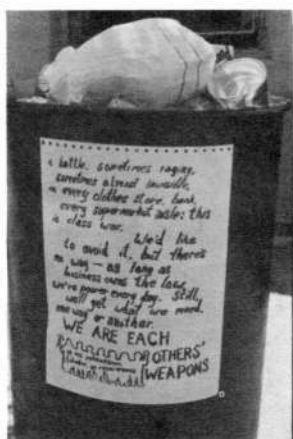 a battle, sometimes raging,
sometimes almost invisible,
in every clothes store, bank,
every supermarket aisle: this
is class war.
We'd like
to avoid it, but there's
no way — as long as
business owns the law,
we're poorer every day. Still,
we'll get what we need,
one way or another.
WE ARE EACH
OTHERS'
WEAPONS